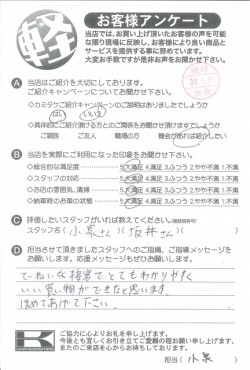 軽
お客様アンケート
当店では、お買い上げ頂いたお客様の声を可能
な限り現場に反映し、お客様により良い商品と
サービスを提供する事に努めています。
大変お手数ですが是非お声をお聞かせ下さい。
A 当店はご紹介を大切にしております。
ご紹介キャンペーンについてお聞かせ下さい。
◇カミタケご紹介キャンペーンのご説明はありましたでしょうか
はい いいえ
◇具体的にご紹介頂ける方とのご関係をお聞かせ頂けますでしょうか
ご親族 ご友人 職場の方 機会があれば紹介したい
B 当店を実際にご利用になった印象をお聞かせ下さい。
◇総合的な満足度 5.大満足 4.満足 3.ふつう 2.やや不満 1.不満
◇スタッフの対応 5.大満足 4.満足 3.ふつう 2.やや不満 1.不満
◇お店の雰囲気、清掃 5.大満足 4.満足 3.ふつう 2.やや不満 1.不満
◇納車時のお車の状態 5.大満足 4.満足 3.ふつう 2.やや不満 1.不満
C 評価したいスタッフがいれば教えてください。
スタッフ名( 小泉さん )( 坂井さん )
D 担当させて頂きましたスタッフへのご指摘、ご指導メッセージを
お願いします。応援メッセージもぜひお願いします。
ていねいな接客でとてもわかりやすく
いい買い物ができたと思います。
ほめてあげて下さい。
ご協力に心よりお礼を申し上げます。
今後とも宜しくお引き立てご愛顧の程お願い申し上げます。
またのご来店を心からお待ちしております。
担当( 小泉 )